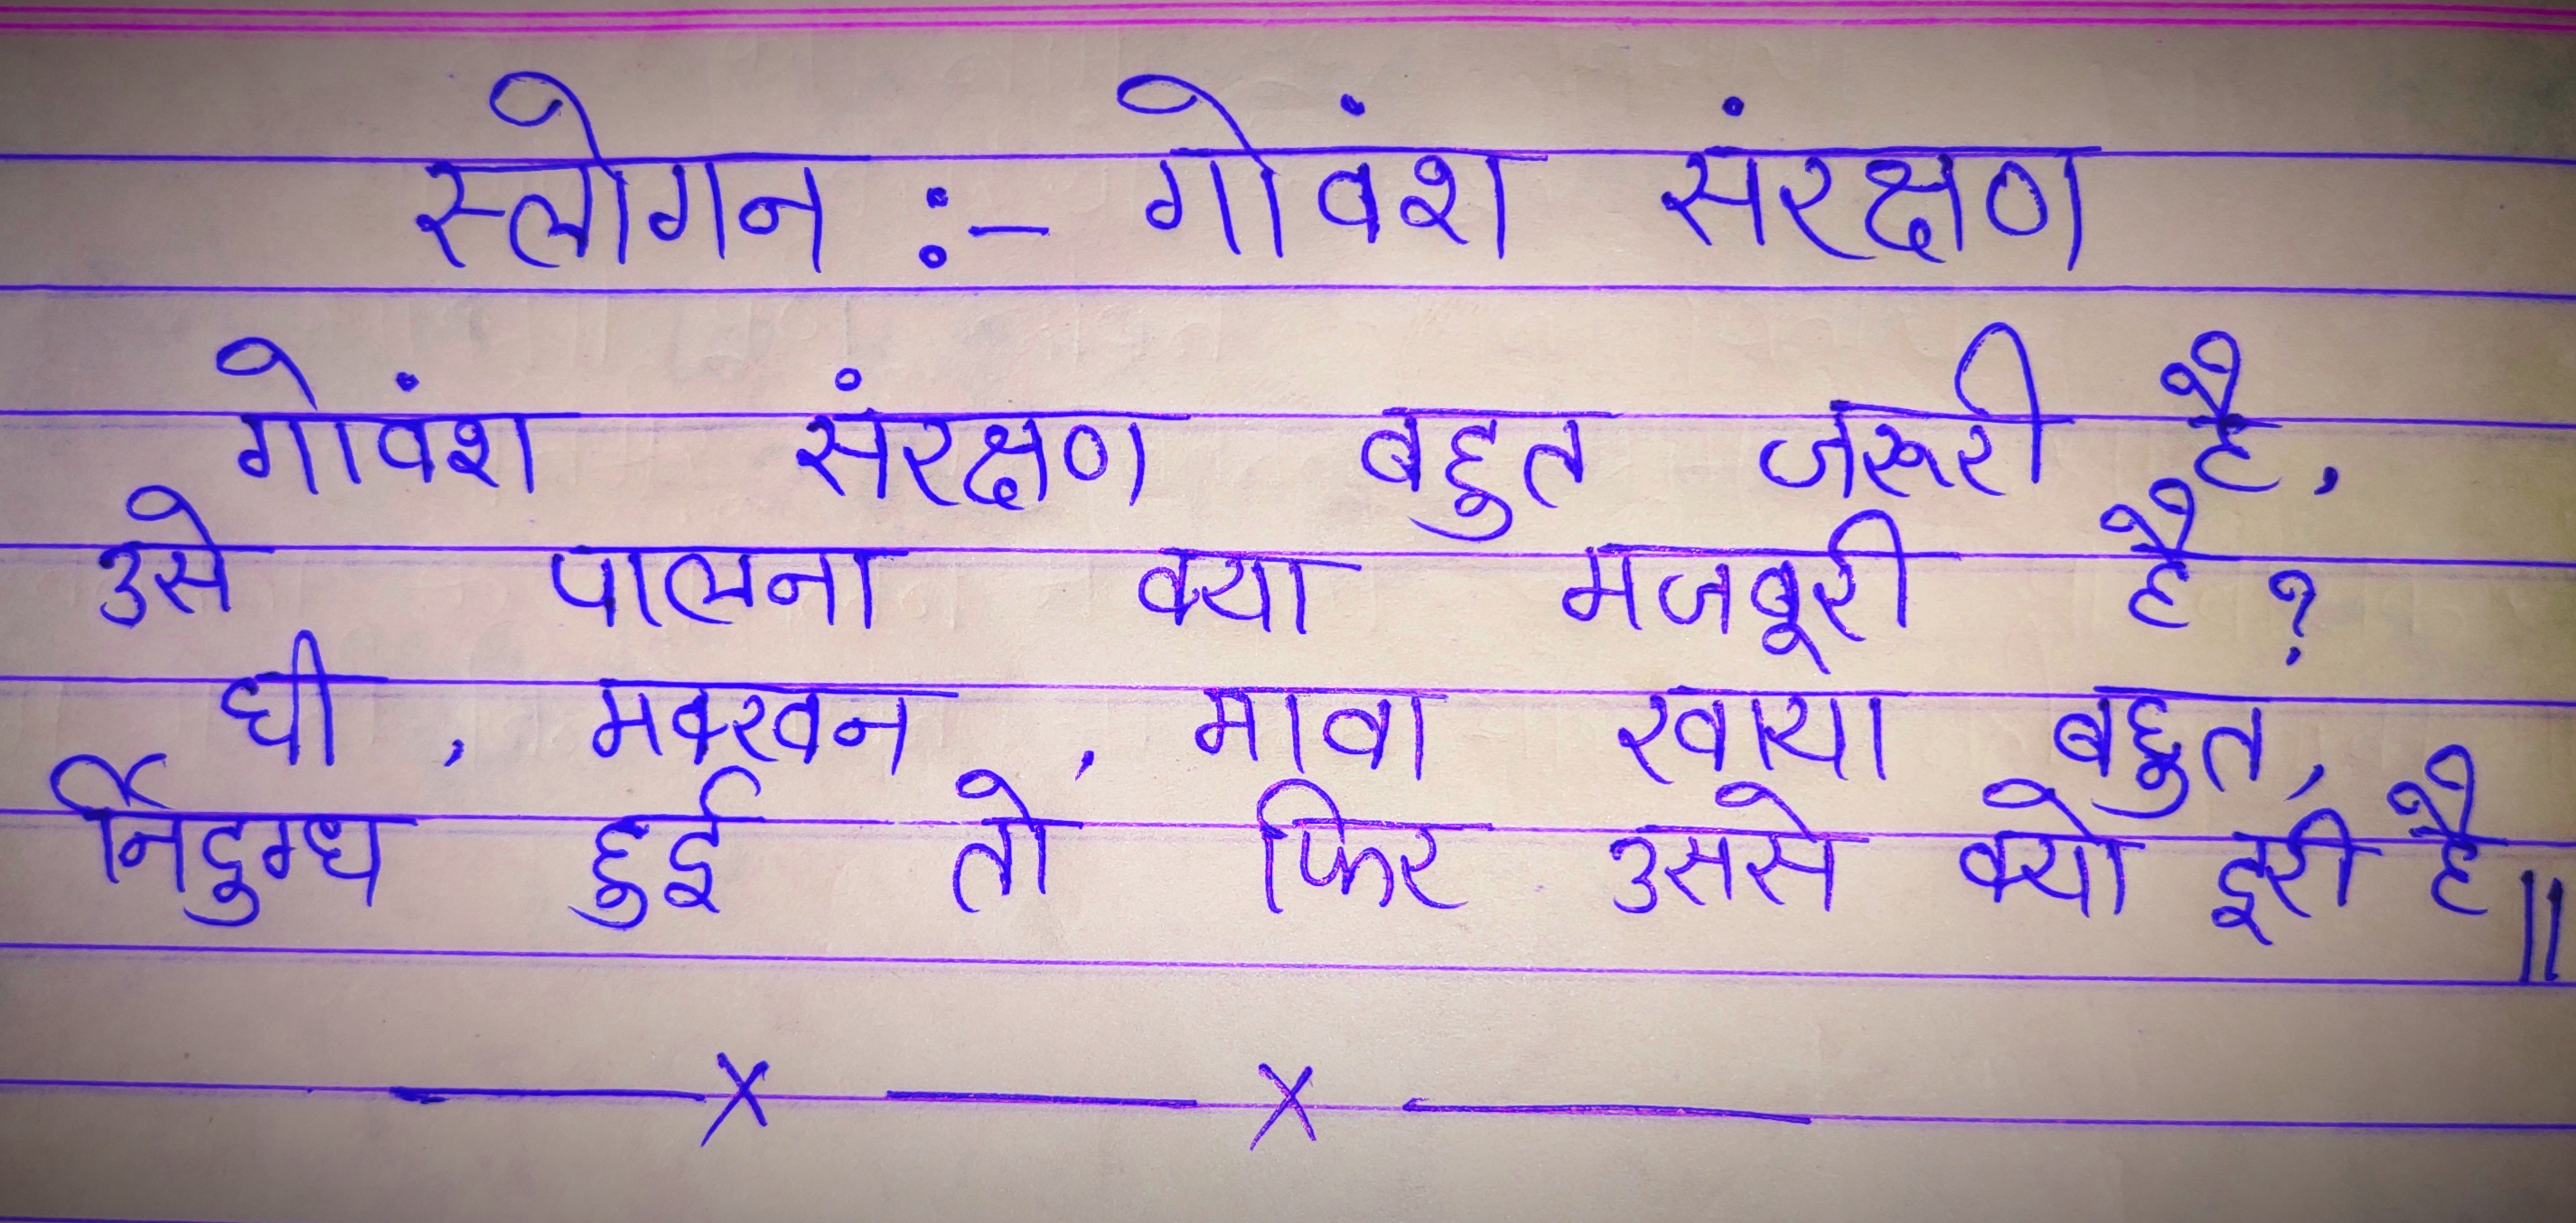 स्लोगन :- गोवंश संरक्षण
गोवंश संरक्षण बहुत जरूरी है,
उसे पालना क्या मजबूरी है?
घी, मक्खन, मावा खाया बहुत,
निर्दुग्ध हुई तो फिर उससे क्यो दूरी है॥
—x—x—